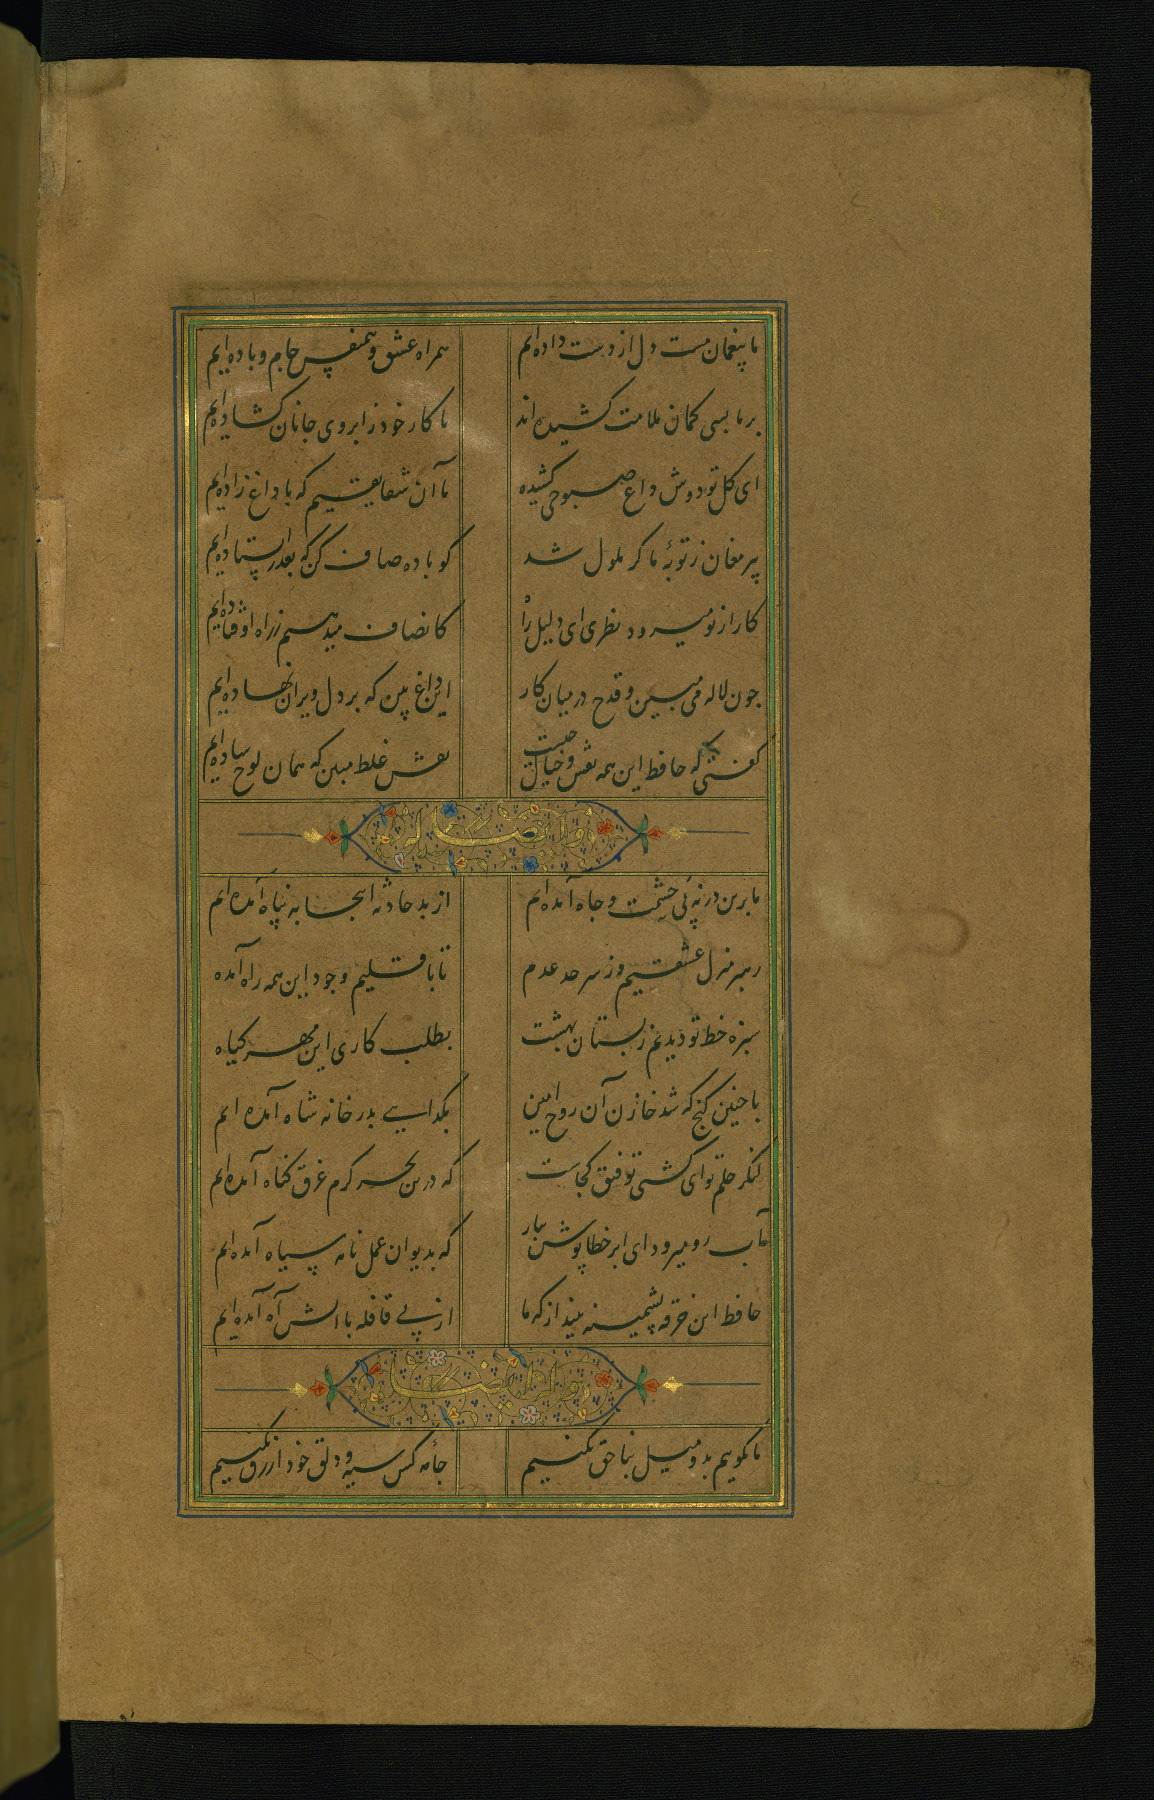 ما پیغمان مست دل از دست داده‌ایم
همراه عشق و همنفس جام و باده‌ایم
بر ما بسی کمان ملامت کشیده‌اند
تا کار خود ز ابروی جانان کشاده‌ایم
ای کل تو دوش داغ صبوحی کشیده
ما آن شقایقیم که با داغ زاده‌ایم
پیر مغان ز توبهٔ ما کر ملول شد
کو باده صاف کن که بعذر ایستاده‌ایم
کار از تو میرود نظری ای دلیل راه
کانصاف میدهیم ز راه اوفتاده‌ایم
چون لاله می مبین و قدح در میان کار
این داغ بین که بر دل ویران نهاده‌ایم
کفتی که حافظ این همه نقش و خیال چیست
نقش غلط مبین که همان لوح ساده‌ایم
و له ایضا
ما برین در نه پی حشمت و جاه آمده‌ایم
از بد حادثه اینجا به پناه آمده‌ایم
رهرو منزل عشقیم و ز سر حد عدم
تا باقلیم وجود این همه راه آمده
سبزه خط تو دیدیم ز بستان بهشت
بطلب کاری این مهر کیاه
با چنین کنج که شد خازن آن روح امین
بکدایی بدر خانه شاه آمده‌ایم
لنکر حلم تو ای کشتی توفیق کجاست
که درین بحر کرم غرق کناه آمده‌ایم
آب رو میرود ای ابر خطا پوش ببار
که بدیوان عمل نامه سیاه آمده‌ایم
حافظ این خرقه پشمینه بینداز که ما
از پی قافله با آتش آه آمده‌ایم
و له ایضا
ما نکوییم بد و میل بناحق نکنیم
جامهٔ کس سیه و دلق خود ازرق نکنیم